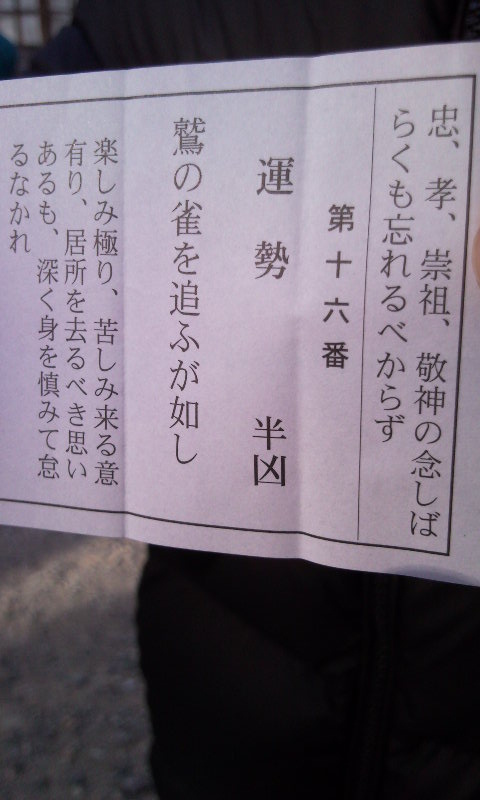 忠、孝、崇祖、敬神の念しば
らくも忘れるべからず
第十六番
運勢 半凶
鷲の雀を追ふが如し
楽しみ極り、苦しみ来る意
有り、居所を去るべき思い
あるも、深く身を慎みて怠
るなかれ